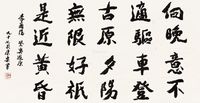 向晚意不
適驅車登
古原夕陽
無限好祇
是近黃昏
李商隱 登樂遊原